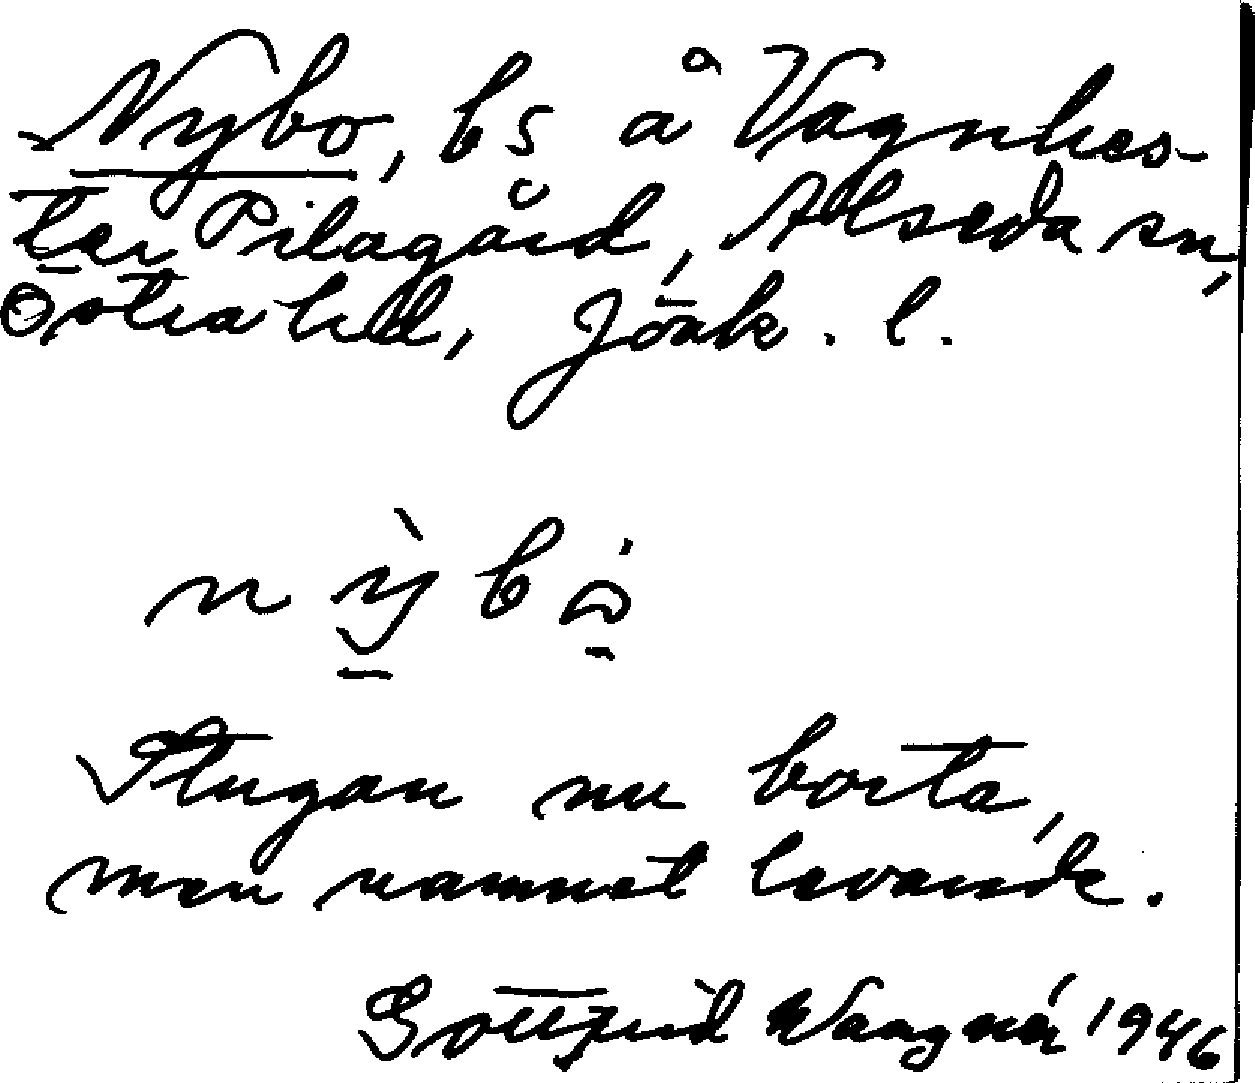 Nybo, bs å Vagnhes-
ter Pilagård, Alseda sn,
Östra hd, Jönk. l.
nỳbȯ
Stugan nu borta,
men namnet levande.
Gottfrid Waagnér 1946